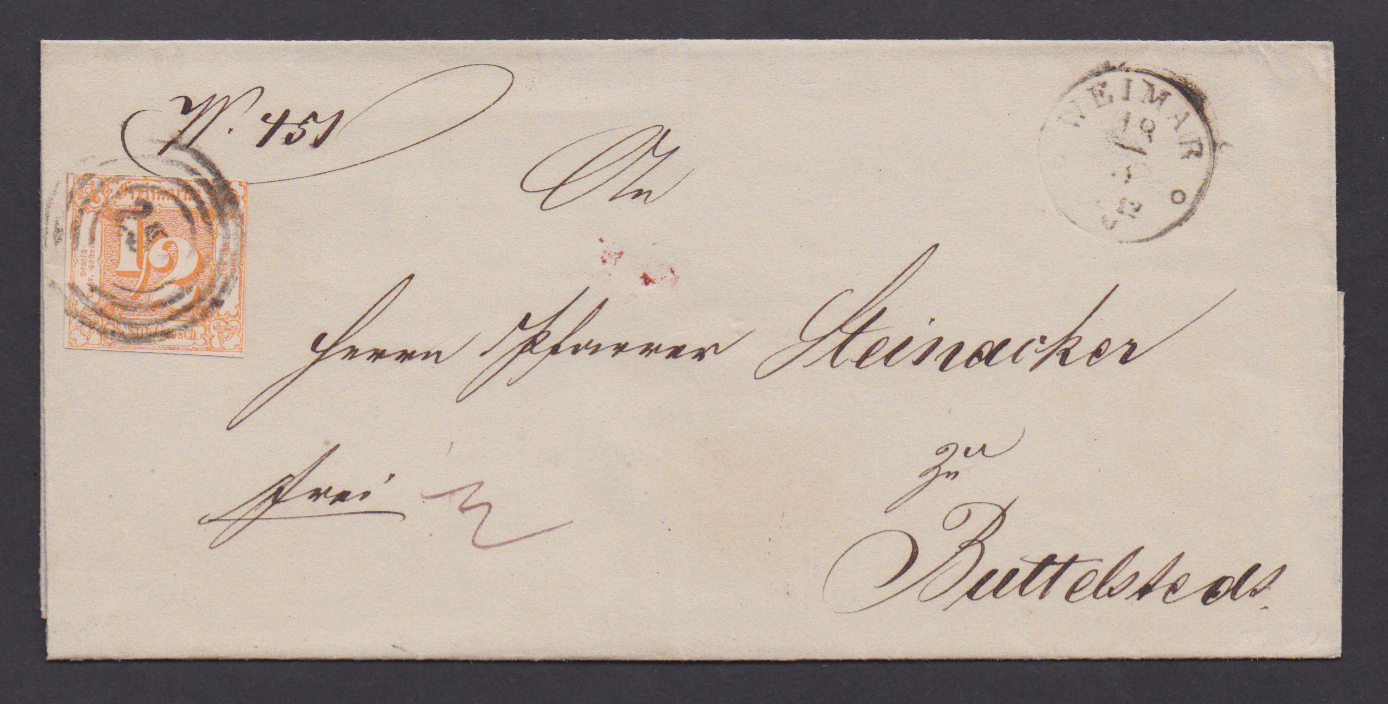 N. 451
WEIMAR
18
An
Freimarke
1/2
Herrn Pfarrer Steinacker
frei
zu
Buttelstedt